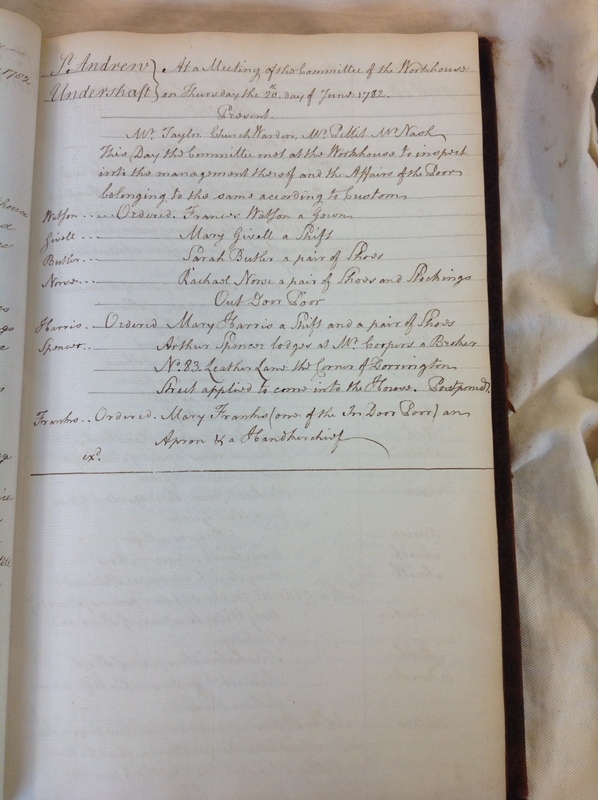 St. Andrew } At a Meeting of the Committee of the Workhouse
Undershaft } on Thursday the 20th. day of June 1782.
Present.
Mr. Taylor Church Warden, Mr. Pettit Mr. Nash
This Day the Committee met at the Workhouse to inspect
into the management thereof and the Affairs of the Poor
belonging to the same according to Custom
Watson ... Ordered. Frances Watson a Gown
Givell ... Mary Givell a Shift
Butler ... Sarah Butler a pair of Shoes
Norse ... Rachael Norse a pair of Shoes and Stockings
Out Door Poor
Harris .. Ordered Mary Harris a Shift and a pair of Shoes
Spencer .. Arthur Spencer lodges at Mr. Coopers a Broker
No. 83 Leather Lane the Corner of Dorrington
Street applied to come into the House. Postponed.
Franks .. Ordered. Mary Franks (one of the In Door Poor) an
Apron & a Handkerchief
exd.
1782